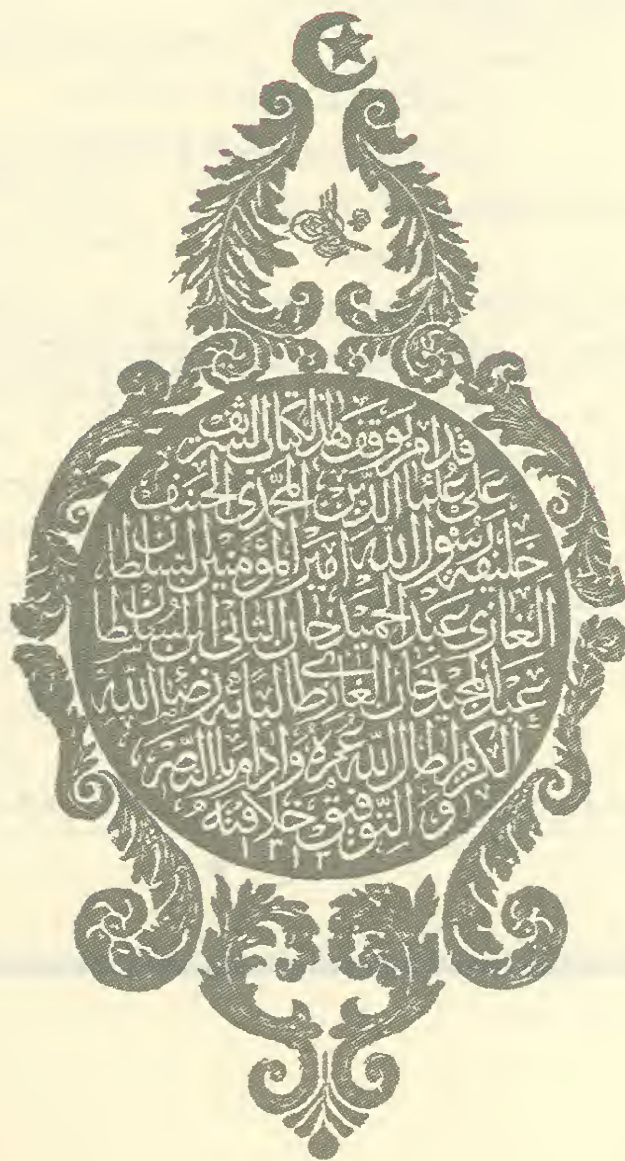 قد امر بوقف هذا الكتاب الشريف
على علماء الدين المحمدى الحنيف
خليفه رسول الله امير المؤمنين السلطان
الغازى عبد الحميد خان الثانى ابن السلطان
عبد المجيد خان الغازى طالبا به رضاء الله
الكريم اطال الله عمره وادام بالنصر
و التوفيق خلافته
١٣١٣